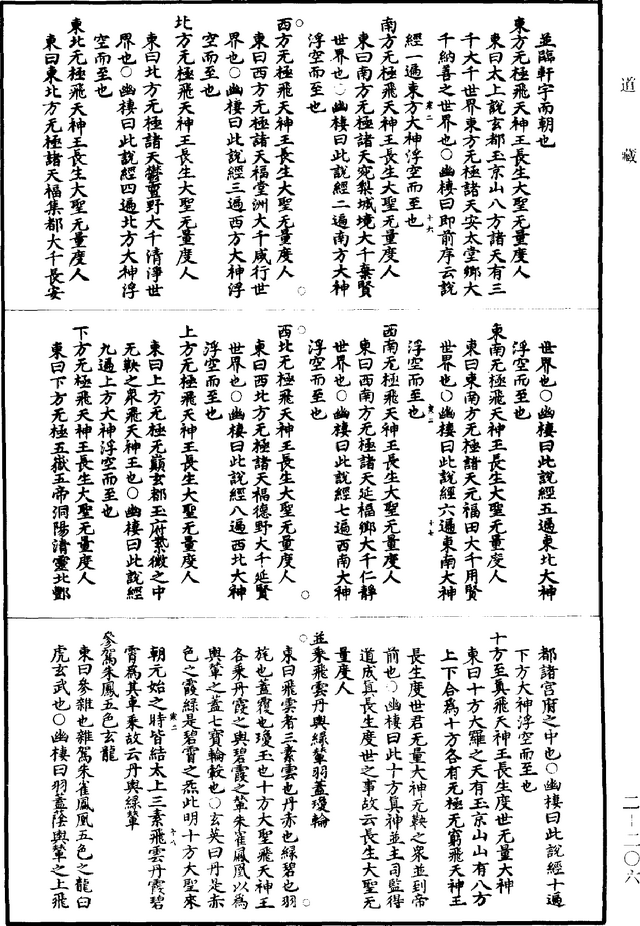 道藏
並臨軒宇而朝也
東方无極飛天神王長生大聖无量度人
東曰太上說玄都玉京山八方諸天有三
千大千世界東方无極諸天安太堂鄉大
千納善之世界也○幽棲曰即前序云說
經一遍東方大神浮空而至也
南方无極飛天神王長生大聖无量度人
東曰南方无極諸天宛梨城境大千棄賢
世界也○幽棲曰此說經二遍南方大神
浮空而至也
西方无極飛天神王長生大聖无量度人
東曰西方无極諸天福堂洲大千咸行世
界也○幽棲曰此說經三遍西方大神浮
空而至也
北方无極飛天神王長生大聖无量度人
東曰北方无極諸天鬱單野大千清淨世
界也○幽棲曰此說經四遍北方大神浮
空而至也
東北无極飛天神王長生大聖无量度人
東曰東北方无極諸天福集都大千長安
世界也○幽棲曰此說經五遍東北大神
浮空而至也
東南无極飛天神王長生大聖无量度人
東曰東南方无極諸天元福田大千用賢
世界也○幽棲曰此說經六遍東南大神
浮空而至也
西南无極飛天神王長生大聖无量度人
東曰西南方无極諸天延福鄉大千仁靜
世界也○幽棲曰此說經七遍西南大神
浮空而至也
西北无極飛天神王長生大聖无量度人
東曰西北方无極諸天福德野大千延賢
世界也○幽棲曰此說經八遍西北大神
浮空而至也
上方无極飛天神王長生大聖无量度人
東曰上方无極无巔玄都玉府紫微之中
无鞅之衆飛天神王也○幽棲曰此說經
九遍上方大神浮空而至也
下方无極飛天神王長生大聖无量度人
東曰下方无極五嶽五帝洞陽清靈北酆
都諸宮府之中也○幽棲曰此說經十遍
下方大神浮空而至也
十方至眞飛天神王長生度世无量大神
東曰十方大羅之天有玉京山山有八方
上下合爲十方各有无極无窮飛天神王
長生度世君无量大神无鞅之衆並到帝
前也○幽棲曰此十方眞神並主司監得
道成眞長生度世之事故云長生大聖无
量度人
並乘飛雲丹輿綠輦羽蓋瓊輪
東曰飛雲者三素雲也丹赤也綠碧也羽
旄也蓋覆也瓊玉也十方大聖飛天神王
各乘丹霞之輿碧霞之輦朱雀鳳凰以爲
輿輦之蓋七寶輪轂也○玄英曰丹是赤
色之霞綠是碧霄之炁此明十方大聖來
朝元始之時皆結太上三素飛雲丹霞碧
霄爲其車乘故云丹輿綠輦
參駕朱鳳五色玄龍
東曰參雜也雜駕朱雀鳳凰五色之龍白
虎玄武也○幽棲曰羽蓋蔭輿輦之上飛
二—二〇六